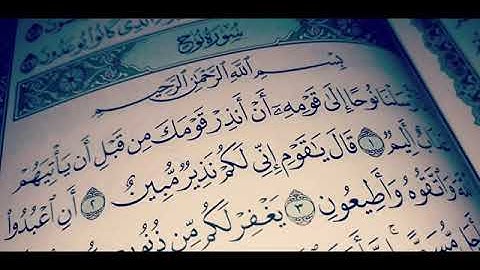 الَّذِي كَانُوا يُوعَدُونَ
سُورَةُ نُوحٍ
بِسْمِ ٱللَّهِ ٱلرَّحْمَٰنِ ٱلرَّحِيمِ
رْسَلْنَا نُوحًا إِلَىٰ قَوْمِهِۦٓ أَنْ أَنذِرْ قَوْمَكَ مِن قَبْلِ أَن يَأْتِيَهُمْ
ذَابٌ أَلِيمٌ ١ قَالَ يَٰقَوْمِ إِنِّي لَكُمْ نَذِيرٌ مُّبِينٌ ٢ أَنِ ٱعْبُدُوا۟
للَّهَ وَٱتَّقُوهُ وَأَطِيعُونِ ٣ يَغْفِرْ لَكُم مِّن ذُنُو
جَلٍ مُّسَمًّى إِنَّ